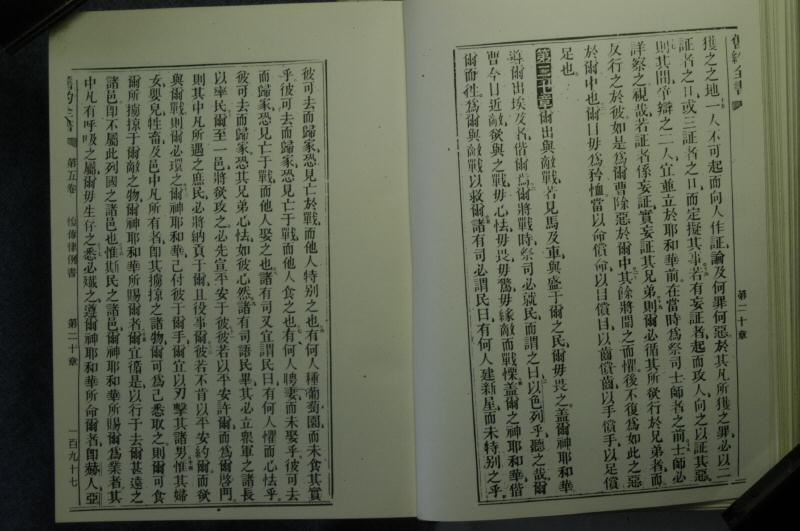 舊約全書
第二十章
獲之之地一人不可起而向人作証論及何罪何惡於其凡所獲之罪必以二
証者之口或三証者之口而定擬其事若有妄証者起而攻人向之以証其惡
則其間爭辯之二人宜並立於耶和華前在當時爲祭司士師者之前士師必
詳察之視哉若証者係妄証實妄証其兄弟則爾必循其所欲行於兄弟者而
反行之於彼如是爲爾曹除惡於爾中其餘將聞之而懼後不復爲如此之惡
於爾中也爾目毋爲矜恤當以命償命以目償目以齒償齒以手償手以足償
足也
第二十章爾出與敵戰若見馬及車與盛于爾之民爾毋畏之蓋爾神耶和華
導爾出埃及者偕爾焉爾將戰時祭司必就民而謂之曰以色列乎聽之哉爾
曹今日近敵欲與之戰毋心怯毋畏毋驚毋緣敵而戰慄蓋爾之神耶和華偕
爾而往爲爾與敵戰以救爾諸有司必謂民曰有何人建新屋而未特別之乎
彼可去而歸家恐見亡於戰而他人特別之也有何人種葡萄園而未食其實
乎彼可去而歸家恐見亡于戰而他人食之也有何人聘妻而未娶乎彼可去
而歸家恐見亡于戰而他人娶之也諸有司又宜謂民曰有何人懼而心怯乎
彼可去而歸家恐其兄弟心怯如彼心然諸有司語民畢其必立衆軍之諸長
以率民爾至一邑將欲攻之必先宣平安于彼彼若以平安許爾而爲爾啓門
則其中凡所遇之庶民必將納貢于爾且役事爾彼若不肯以平安約爾而欲
與爾戰則爾必環之爾神耶和華已付彼于爾手爾宜以刃擊其諸男惟其婦
女嬰兒牲畜及邑中凡所有者即其擄掠之諸物爾可爲己悉取之則爾可食
爾所擄掠于爾敵之物爾神耶和華所賜爾者爾宜循是以行于去爾甚遠之
諸邑即不屬此列國之諸邑也惟斯民之諸邑爾神耶和華所賜爾爲業者其
中凡有呼吸之屬爾毋生存之悉必滅之遵爾神耶和華所命爾者即赫人亞
第五卷
律例書
第二十章
一百九十七